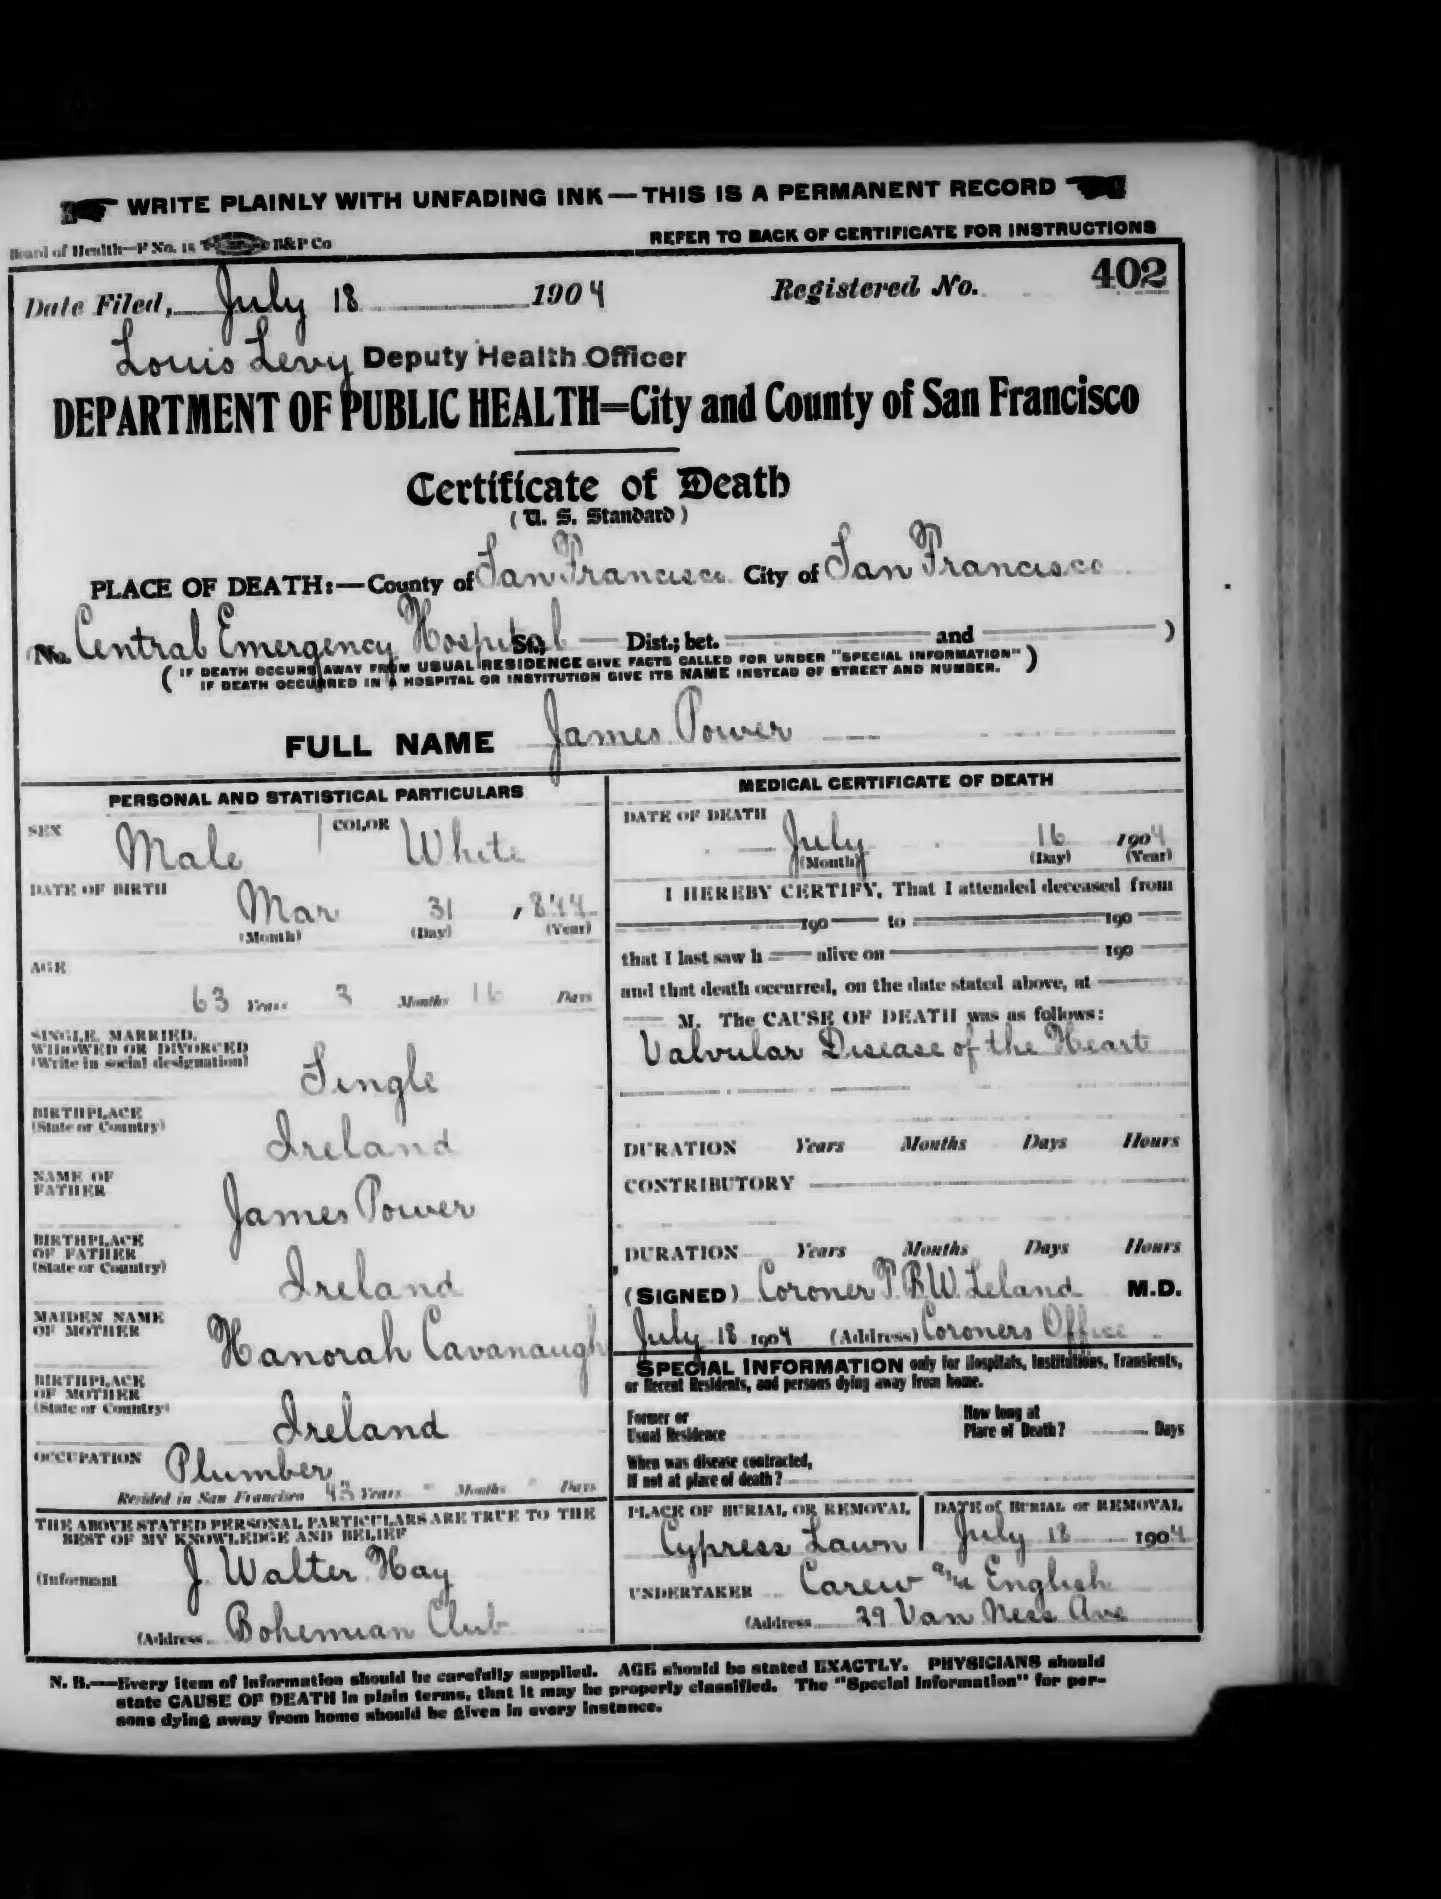 WRITE PLAINLY WITH UNFADING INK — THIS IS A PERMANENT RECORD
Board of Health—F No. 15 B&P Co
REFER TO BACK OF CERTIFICATE FOR INSTRUCTIONS
Date Filed, July 18 1904 Registered No. 402
Louis Levy Deputy Health Officer
DEPARTMENT OF PUBLIC HEALTH=City and County of San Francisco
Certificate of Death
(U. S. Standard)
PLACE OF DEATH:—County of San Francisco City of San Francisco
No. Central Emergency Hospital St.; — Dist.; bet. — and — )
( IF DEATH OCCURS AWAY FROM USUAL RESIDENCE GIVE FACTS CALLED FOR UNDER "SPECIAL INFORMATION" )
IF DEATH OCCURRED IN A HOSPITAL OR INSTITUTION GIVE ITS NAME INSTEAD OF STREET AND NUMBER.
FULL NAME James Power
PERSONAL AND STATISTICAL PARTICULARS
SEX Male COLOR White
DATE OF BIRTH Mar 31 , 844
(Month) (Day) (Year)
AGE
63 Years 3 Months 16 Days
SINGLE, MARRIED,
WIDOWED OR DIVORCED
(Write in social designation) Single
BIRTHPLACE
(State or Country) Ireland
NAME OF
FATHER James Power
BIRTHPLACE
OF FATHER
(State or Country) Ireland
MAIDEN NAME
OF MOTHER Hanorah Cavanaugh
BIRTHPLACE
OF MOTHER
(State or Country) Ireland
OCCUPATION Plumber
Resided in San Francisco 43 Years - Months - Days
THE ABOVE STATED PERSONAL PARTICULARS ARE TRUE TO THE
BEST OF MY KNOWLEDGE AND BELIEF
(Informant J. Walter Hay
(Address Bohemian Club
MEDICAL CERTIFICATE OF DEATH
DATE OF DEATH
July 16 1904
(Month) (Day) (Year)
I HEREBY CERTIFY, That I attended deceased from
— 190 — to — 190 —
that I last saw h — alive on — 190 —
and that death occurred, on the date stated above, at —
— M. The CAUSE OF DEATH was as follows:
Valvular Disease of the Heart
DURATION Years Months Days Hours
CONTRIBUTORY —
DURATION Years Months Days Hours
(SIGNED) Coroner T. B. W. Leland M.D.
July 18 1904 (Address) Coroners Office
SPECIAL INFORMATION only for Hospitals, Institutions, Transients,
or Recent Residents, and persons dying away from home.
Former or
Usual Residence
How long at
Place of Death? Days
When was disease contracted,
If not at place of death?
PLACE OF BURIAL OR REMOVAL
Cypress Lawn
DATE of BURIAL or REMOVAL
July 18 1904
UNDERTAKER Carew and English
(Address 29 Van Ness Ave
N. B.—Every item of information should be carefully supplied. AGE should be stated EXACTLY. PHYSICIANS should
state CAUSE OF DEATH in plain terms, that it may be properly classified. The "Special Information" for per-
sons dying away from home should be given in every instance.